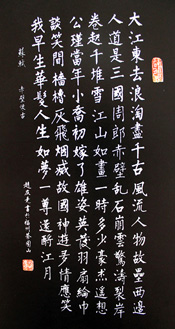 大江東去浪淘盡千古風流人物故壘西邊
人道是三國周郎赤壁亂石崩雲驚濤裂岸
卷起千堆雪江山如畫一時多少豪杰遙想
公瑾當年小喬初嫁了雄姿英發羽扇綸巾
談笑間檣櫓灰飛烟滅故國神遊多情應笑
我早生華髮人生如夢一尊還酹江月
蘇軾
赤壁懷古